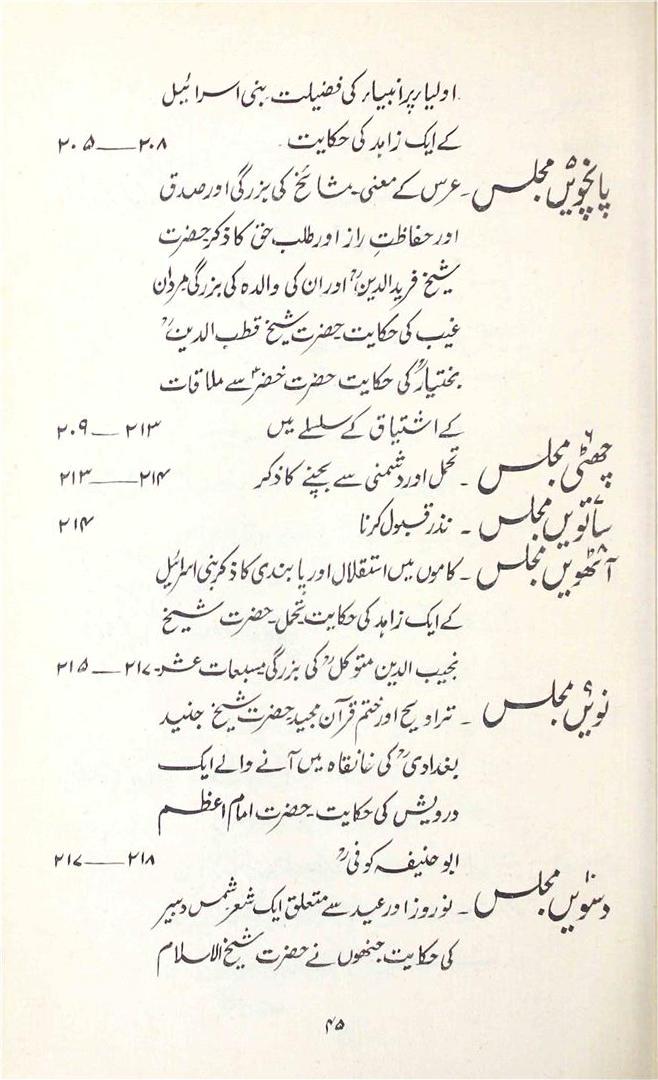 اولیاء پر انبیاء کی فضیلت۔ بنی اسرائیل
کے ایک زاہد کی حکایت۔ ۲۰۸ــــ۲۰۵
پانچویں۵ مجلس ۔ عرس کے معنی۔ مشائخ کی بزرگی اور صدق
اور حفاظتِ راز اور طلب حق کا ذکر۔ حضرت
شیخ فرید الدینؒ اور ان کی والدہ کی بزرگی مردان
غیب کی حکایت۔ حضرت شیخ قطب الدینؒ
بختیارؒ کی حکایت حضرت خضرؑ سے ملاقات
کے اشتیاق کے سلسلے میں ۲۱۳ــــ۲۰۹
چھٹی۶ مجلس ۔ تحمل اور دشمنی سے بچنے کا ذکر ۲۱۴ــــ۲۱۳
ساتویں۷ مجلس ۔ نذر قبول کرنا ۲۱۴
آٹھویں۸ مجلس ۔ کاموں میں استقلال اور پابندی کا ذکر بنی اسرائیل
کے ایک زاہد کی حکایت۔ تحمل۔ حضرت شیخ
نجیب الدین متوکلؒ کی بزرگی مسبعات عشر۔ ۲۱۷ــــ۲۱۵
نویں۹ مجلس ۔ تراویح اور ختم قرآن مجید۔ حضرت شیخ جنید
بغدادیؒ کی خانقاہ میں آنے والے ایک
درویش کی حکایت۔ حضرت امام اعظم
ابو حنیفہ کوفیؒ ۲۱۸ــــ۲۱۷
دسویں۱۰ مجلس ۔ نوروز اور عید سے متعلق ایک شعر شمس دبیر
کی حکایت جنھوں نے حضرت شیخ الاسلام
۴۵